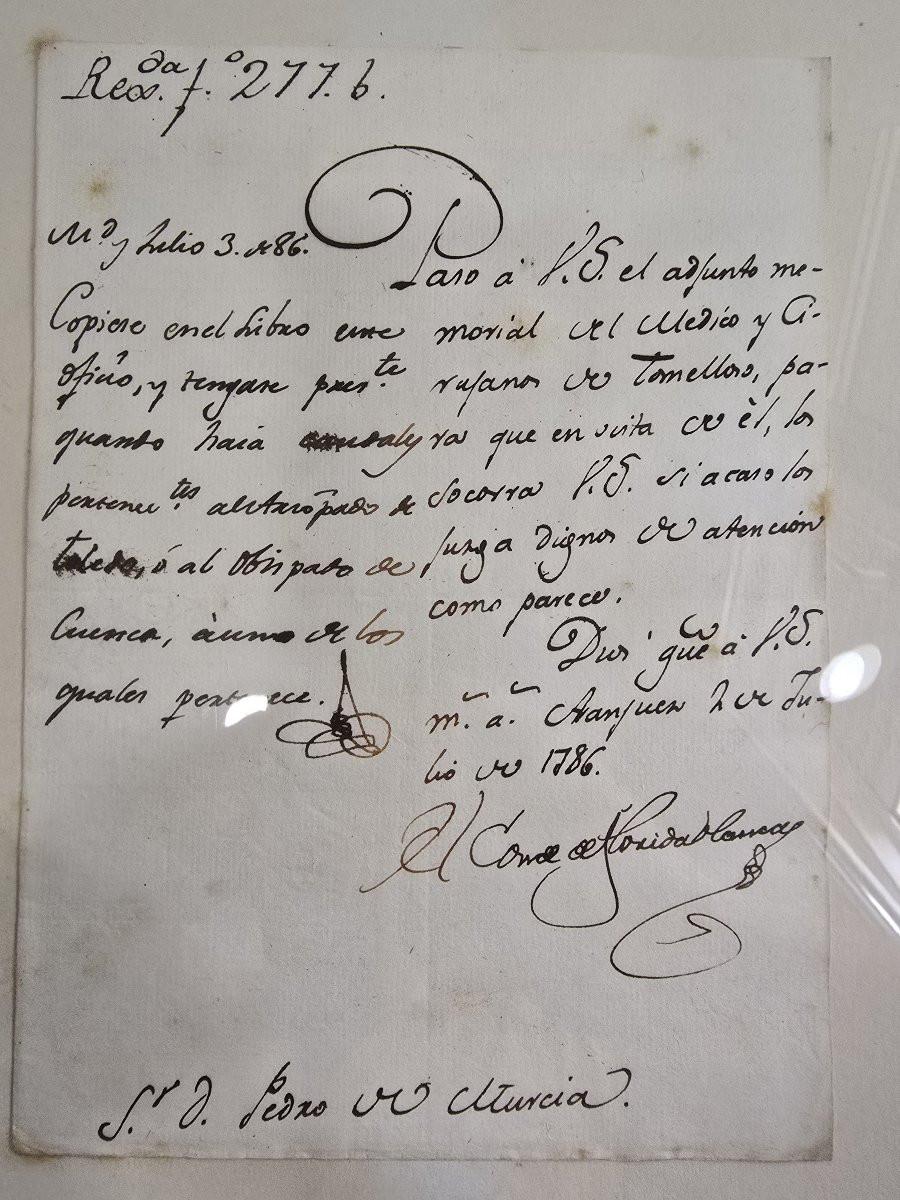 Regs.da f.o 277. b.
M.d y Julio 3. de 86.
Copiese en el Libro este
oficio, y tengase pres.te
quando haia caudales
pertenec.tes al Arzôpado de
Toledo, ó al Obispado de
Cuenca, à uno de los
quales pertenece.
Paso à V.S. el adjunto me-
morial del Medico y Ci-
rujanos de Tomelloso, pa-
ra que en vista de èl, los
socorra V.S. si acaso los
juzga dignos de atención
como parece.
Dios gue à V.S.
m.s a.s Aranjuez 2 de Ju-
lio de 1786.
El Conde de Floridablanca
S.r D. Pedro de Murcia.